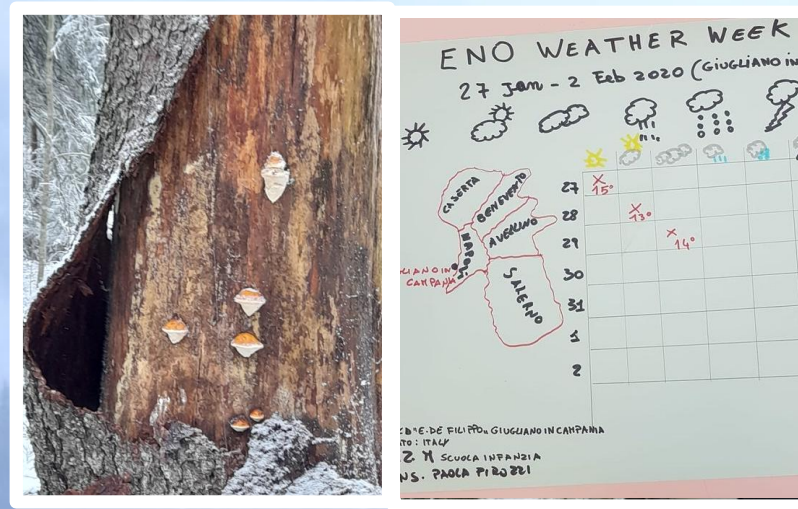 ENO WEATHER WEEK
27 Jan - 2 Feb 2020 (GIUGLIANO IN
CASERTA
BENEVENTO
AVELLINO
NAPOLI
LIANO IN
CAMPANIA
SALERNO
27 X 15°
28 X 13°
29 X 14°
30
31
1
2
CD "E. DE FILIPPO" GIUGLIANO IN CAMPANIA
TO: ITALY
2 M SCUOLA INFANZIA
NS. PAOLA PIROZZI